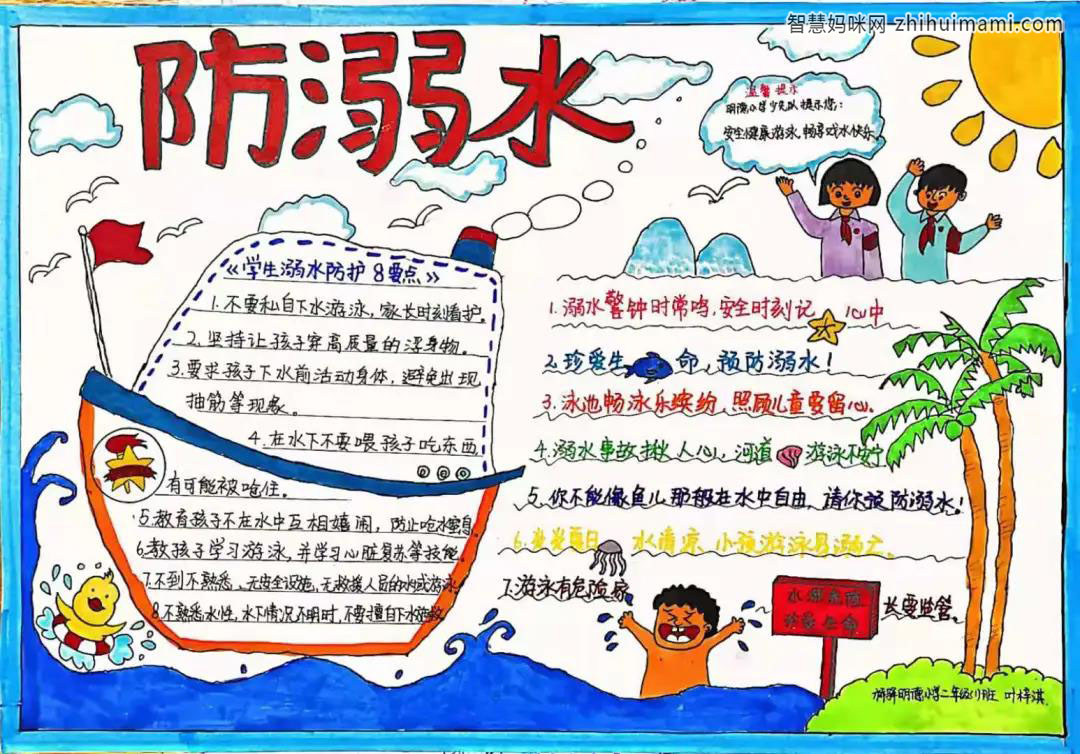 智慧妈咪网 zhihuimami.com
防溺水
温馨提示
明德小学少先队提示您:
安全健康游泳,畅享戏水快乐。
《学生溺水防护8要点》
1.不要私自下水游泳,家长时刻看护。
2.坚持让孩子穿高质量的浮身物。
3.要求孩子下水前活动身体,避免出现
抽筋等现象。
4.在水下不要喂孩子吃东西
有可能被呛住。
5.教育孩子不在水中互相嬉闹,防止呛水窒息。
6.教孩子学习游泳,并学习心脏复苏等技能。
7.不到不熟悉、无安全设施,无救援人员的水域游泳
8.不熟悉水性,水下情况不明时,不要擅自下水施救
1.溺水警钟时常鸣,安全时刻记 心中
2.珍爱生 命,预防溺水!
3.泳池畅泳乐缤纷,照顾儿童要留心。
4.溺水事故揪人心,河道 游泳不安宁
5.你不能像鱼儿那般在水中自由,请你预防溺水!
6.炎炎夏日 水清凉,小孩游泳易溺亡。
7.游泳有危险,家
长要监管。
水深危险
珍爱生命
明德小学二年级(1)班 叶梓淇